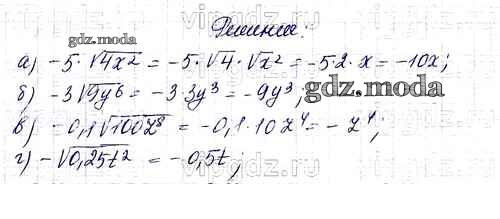 Решение:
а) -5·√4x² = -5·√4·√x² = -5·2·x = -10x;
б) -3√9y⁶ = -3·3y³ = -9y³;
gdz.moda
в) -0,1√100z⁸ = -0,1·10z⁴ = -z⁴;
г) -√0,25t² = -0,5t;